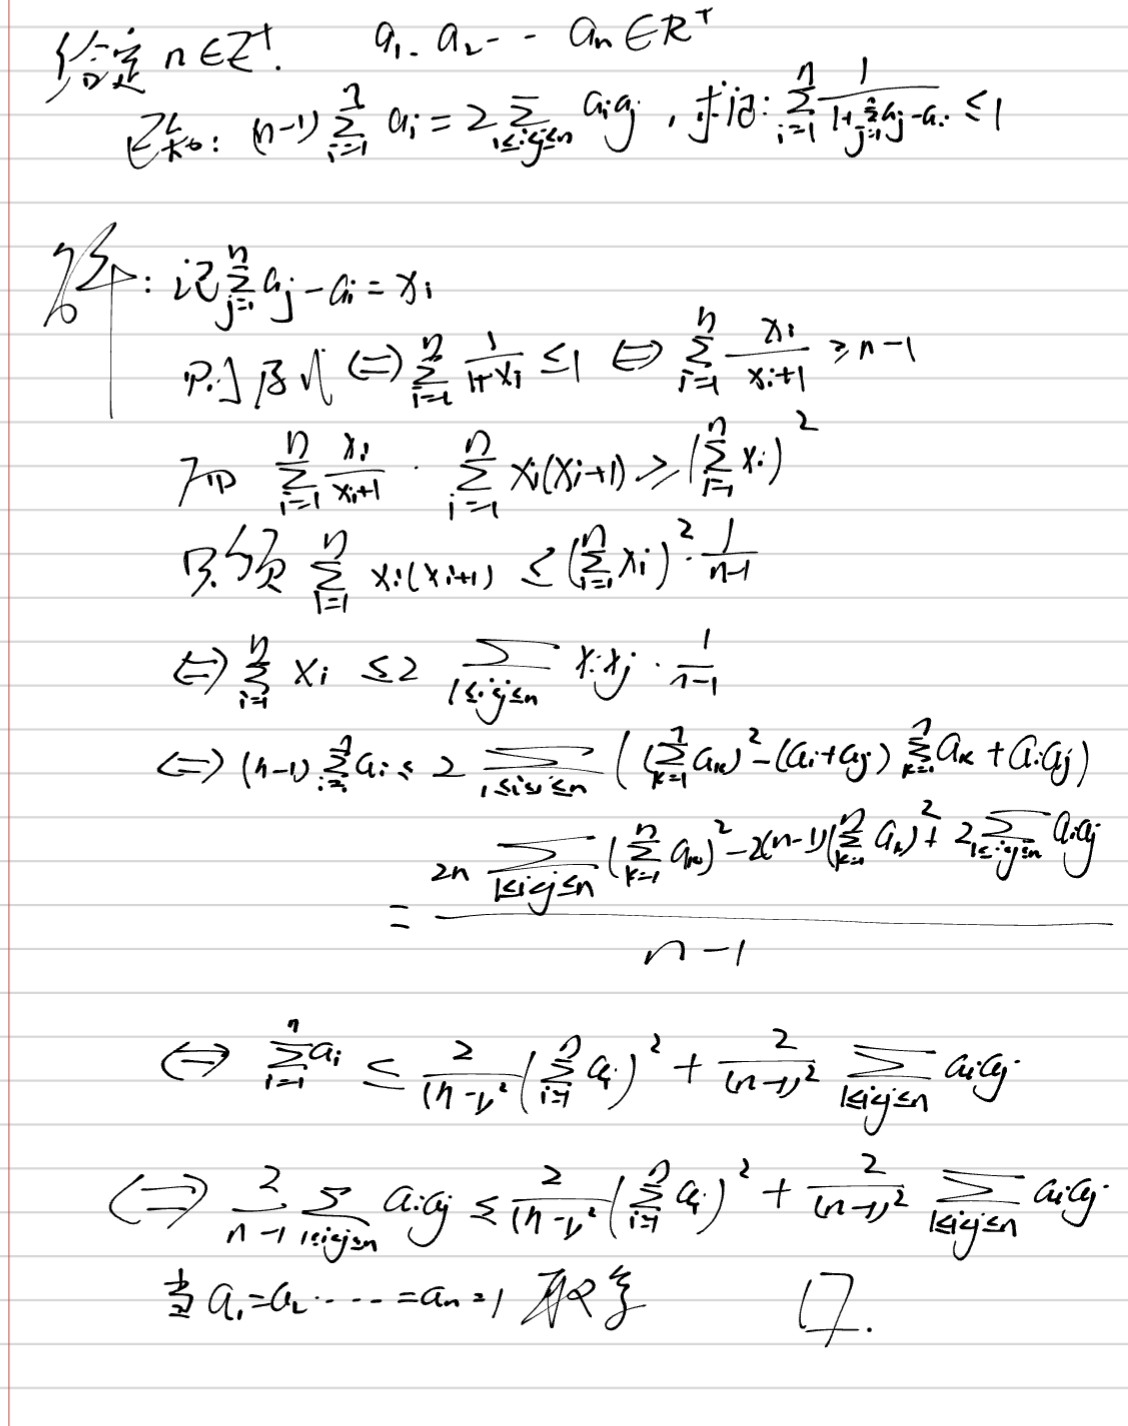 给定 n∈Z⁺. a₁. a₂ - - aₙ∈R⁺
已知: (n-1) \sum_{i=1}^{n} a_i = 2 \sum_{1≤i<j≤n} a_i a_j , 求证: \sum_{i=1}^{n} \frac{1}{1+\sum_{j=1}^{n} a_j - a_i} ≤ 1
解: 记 \sum_{j=1}^{n} a_j - a_i = x_i
则原式 ⇔ \sum_{i=1}^{n} \frac{1}{1+x_i} ≤ 1 ⇔ \sum_{i=1}^{n} \frac{x_i}{x_i+1} ≥ n-1
而 \sum_{i=1}^{n} \frac{x_i}{x_i+1} · \sum_{i=1}^{n} x_i(x_i+1) ≥ (\sum_{i=1}^{n} x_i)^2
只须 \sum_{i=1}^{n} x_i(x_i+1) ≤ (\sum_{i=1}^{n} x_i)^2 · \frac{1}{n-1}
⇔ \sum_{i=1}^{n} x_i ≤ 2 \sum_{1≤i<j≤n} x_i x_j · \frac{1}{n-1}
⇔ (n-1) \sum_{i=1}^{n} a_i ≤ 2 \sum_{1≤i<j≤n} ( (\sum_{k=1}^{n} a_k)^2 - (a_i+a_j) \sum_{k=1}^{n} a_k + a_i a_j )
= \frac{2n \sum_{1≤i<j≤n} (\sum_{k=1}^{n} a_k)^2 - 2(n-1)(\sum_{k=1}^{n} a_k)^2 + 2 \sum_{1≤i<j≤n} a_i a_j}{n-1}
⇔ \sum_{i=1}^{n} a_i ≤ \frac{2}{(n-1)^2} (\sum_{i=1}^{n} a_i)^2 + \frac{2}{(n-1)^2} \sum_{1≤i<j≤n} a_i a_j
⇔ \frac{2}{n-1} \sum_{1≤i<j≤n} a_i a_j ≤ \frac{2}{(n-1)^2} (\sum_{i=1}^{n} a_i)^2 + \frac{2}{(n-1)^2} \sum_{1≤i<j≤n} a_i a_j
当 a₁=a₂ ····· =aₙ=1 取等 □.